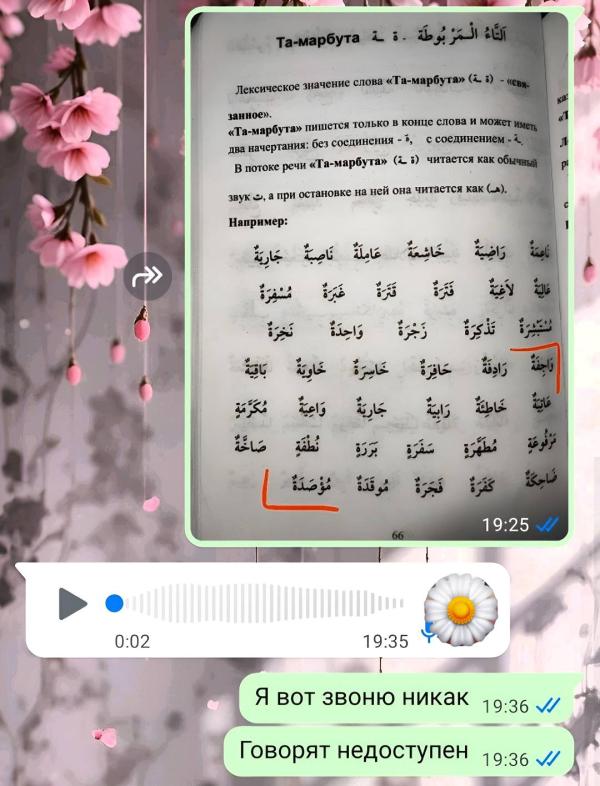 Та-марбута اَلتَّاءُ الْـمَرْبُوطَة ۔ ة ـة
Лексическое значение слова «Та-марбута» (ة ـة) - «свя-
занное».
«Та-марбута» пишется только в конце слова и может иметь
два начертания: без соединения - ة, с соединением - ـة.
В потоке речи «Та-марбута» (ة ـة) читается как обычный
звук ت, а при остановке на ней она читается как (ـه).
Например:
نَاعِمَةٌ رَاضِيَةٌ خَاشِعَةٌ عَامِلَةٌ نَاصِبَةٌ جَارِيَةٌ
عَالِيَةٌ لاَغِيَةٌ فَتَرَةٌ قَتَرَةٌ غَبَرَةٌ مُسْفِرَةٌ
مُسْتَبْشِرَةٌ تَذْكِرَةٌ زَجْرَةٌ وَاحِدَةٌ نَخِرَةٌ
وَاجِفَةٌ رَادِفَةٌ حَافِرَةٌ خَاسِرَةٌ خَاوِيَةٌ بَاقِيَةٌ
عَاتِيَةٌ خَاطِئَةٌ رَابِيَةٌ جَارِيَةٌ وَاعِيَةٌ مُكَرَّمَةٍ
مَرْفُوعَةٍ مُطَهَّرَةٍ سَفَرَةٍ بَرَرَةٍ نُطْفَةٍ صَاخَّةٌ
ضَاحِكَةٌ كَفَرَةٌ فَجَرَةٌ مُوقَدَةٌ مُؤْصَدَةٌ
66
19:25
0:02 19:35
Я вот звоню никак 19:36
Говорят недоступен 19:36